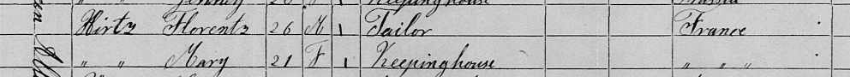 Keeping house
Hirtz Florentz 26 M 1 Tailor France
" " Mary 21 F 1 Keeping house " " "